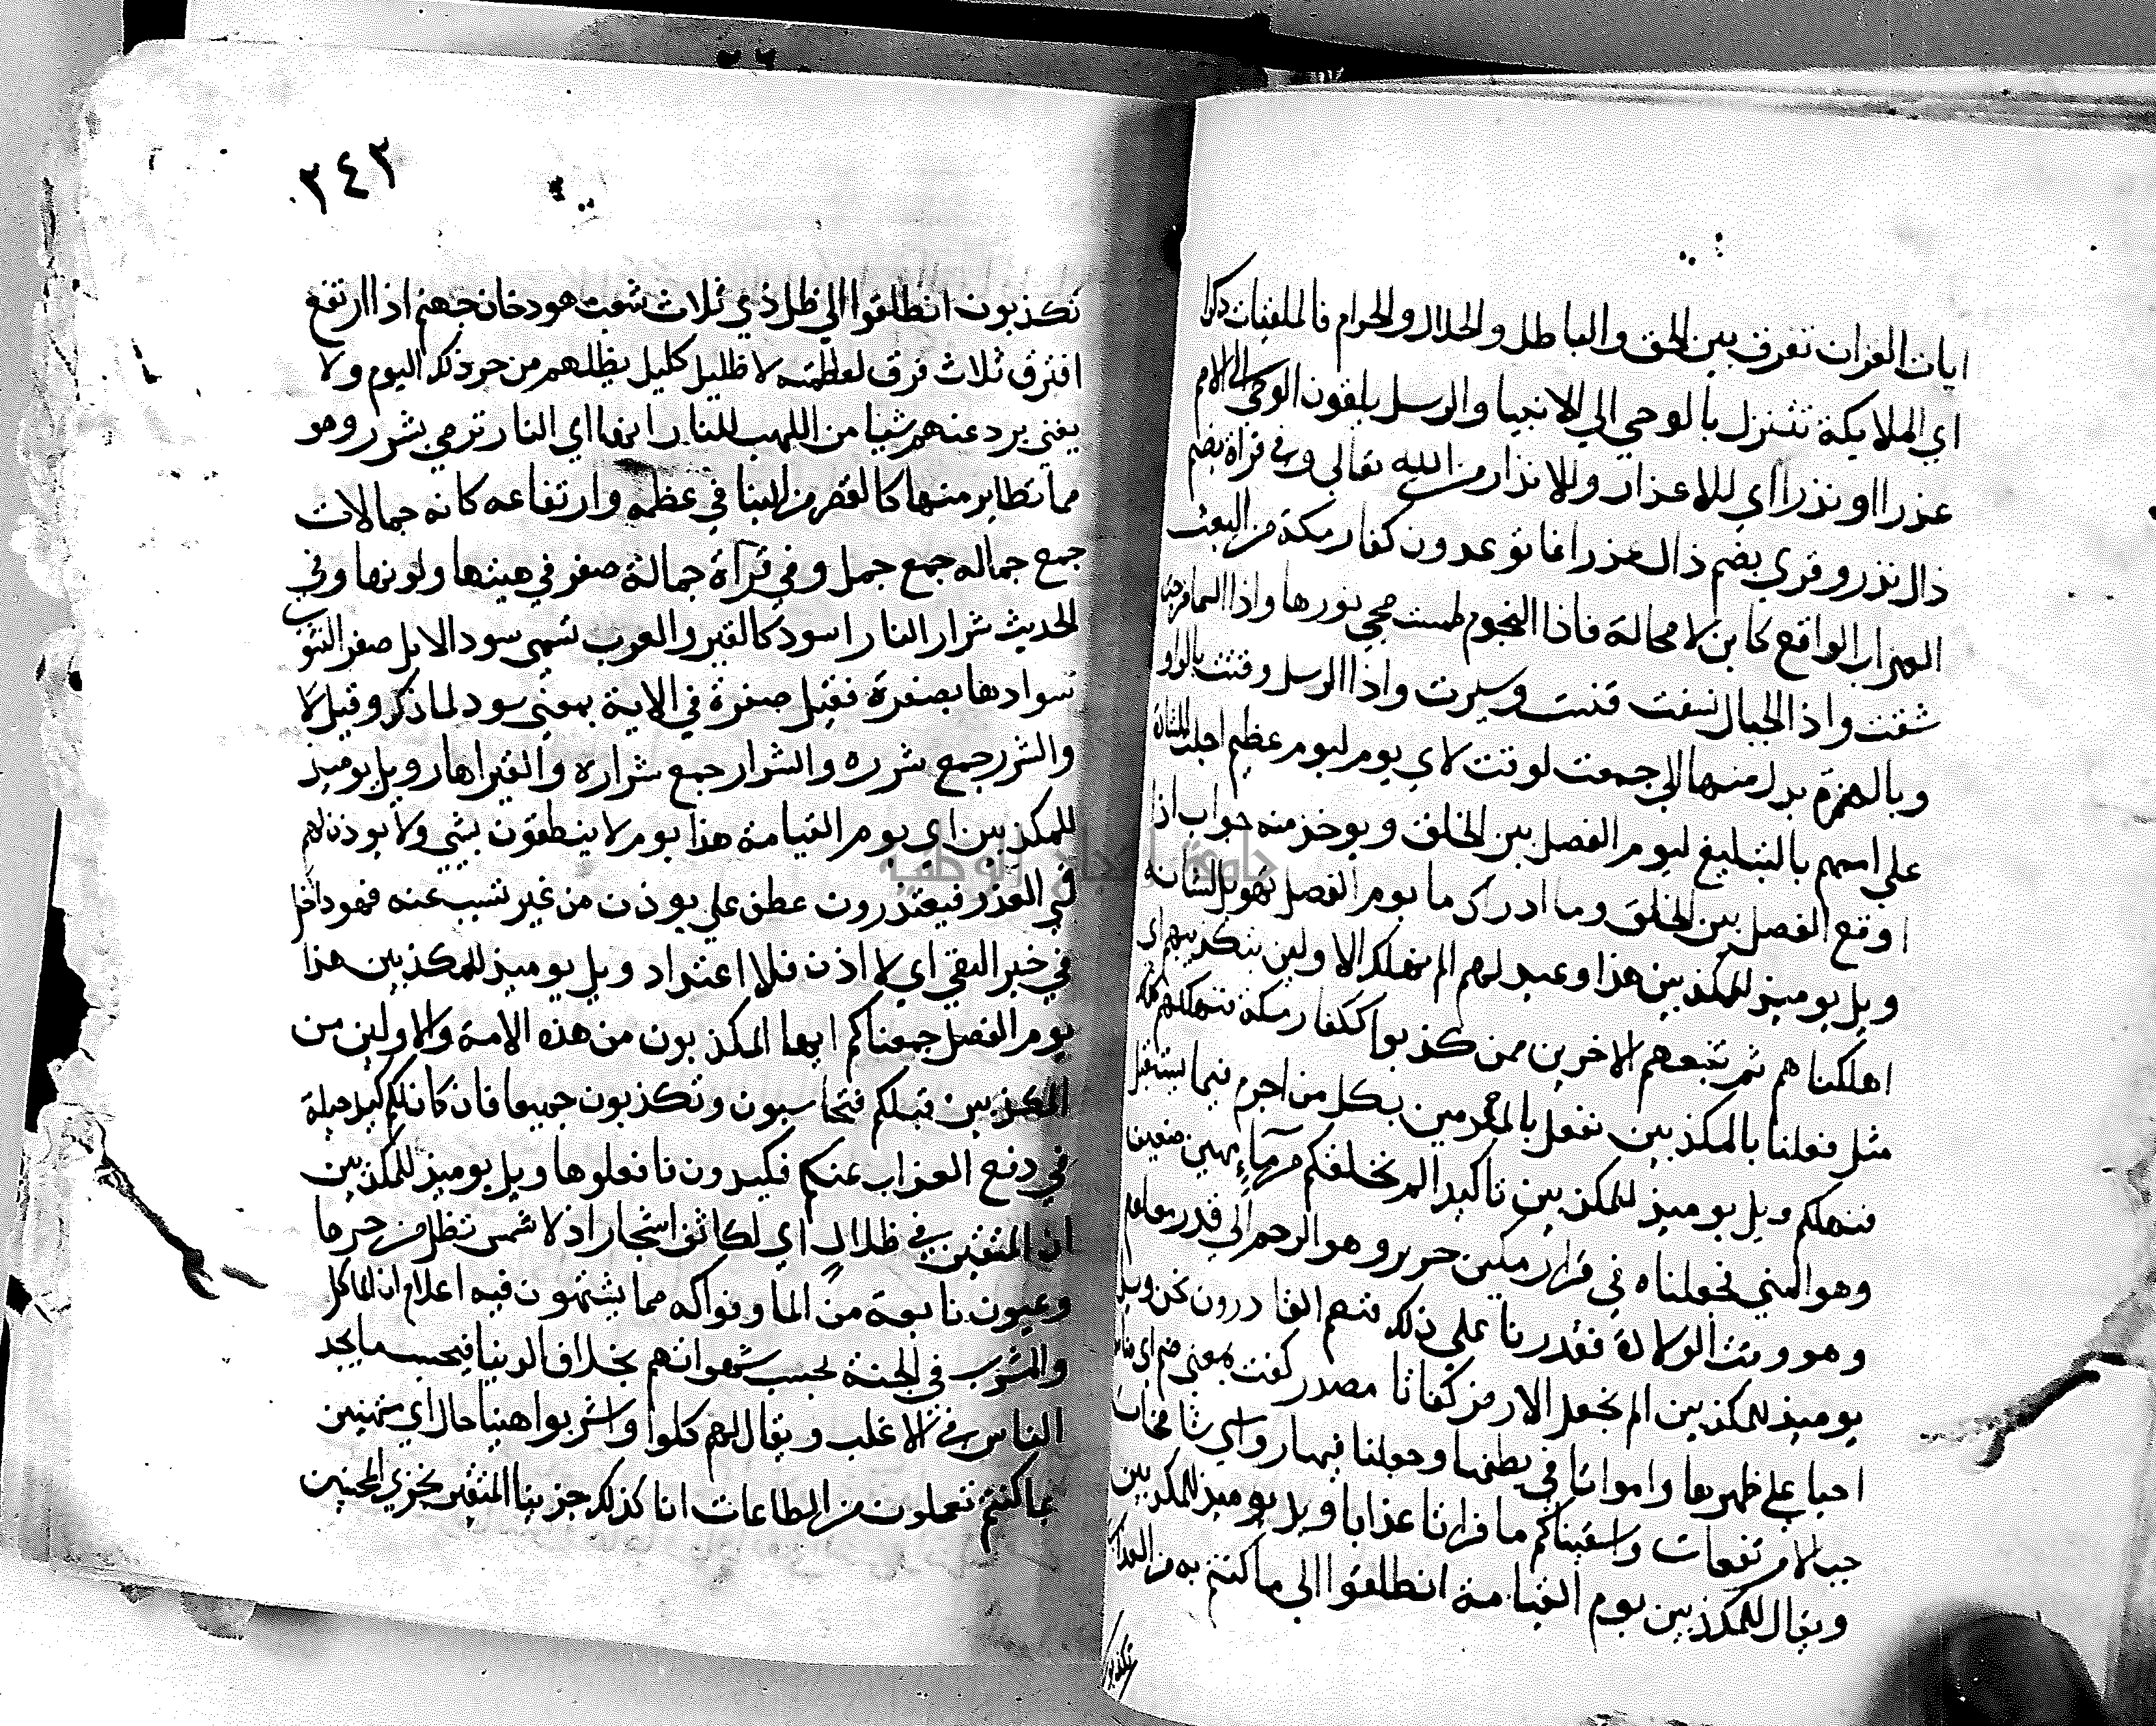 ايات القران تفرق بين الحق والباطل والحلال والحرام فالملقيات ذكرا
اي الملايكة تتنزل بالوحي الي الانبيا والرسل يلقون الوحي الي الامم
عذرا او نذرا اي للاعذار وللانذار من الله تعالي وفي قراة بضم
ذال نذر وقري بضم ذال عذرا انما توعدون كفار مكة من البعث
العذاب الواقع كاين لا محالة فاذا النجوم طمست محي نورها واذا السما فرجت
شقت واذا الجبال نسفت فتتت وسيرت واذا الرسل وقتت بالواو
وبالهمزة بدل منها اي جمعت لوقت لاي يوم ليوم عظيم اجلت للشهادة
علي اممهم بالتبليغ ليوم الفصل بين الخلق ويوخذ منه جواب اذا
اوقع الفصل بين الخلق وما ادراك ما يوم الفصل تهويل لشانه
ويل يوميذ للمكذبين هذا وعيد لهم الم نهلك الاولين بتكذيبهم اي
اهلكناهم ثم نتبعهم الاخرين ممن كذبوا ككفار مكة فنهلكهم كذلك
مثل فعلنا بالمكذبين نفعل بالمجرمين بكل من اجرم فيما يستقبل
فنهلكهم ويل يوميذ للمكذبين تاكيد الم نخلقكم من ماء مهين ضعيف
وهو المني فجعلناه في قرار مكين حريز وهو الرحم الي قدر معلوم
وهو وقت الولادة فقدرنا علي ذلك فنعم القادرون نحن ويل
يوميذ للمكذبين الم نجعل الارض كفاتا مصدر كفت بمعني ضم اي ضامة
احيا علي ظهرها وامواتا في بطنها وجعلنا فيها رواسي شامخات
جبالا مرتفعات واسقيناكم ما فراتا عذابا ويل يوميذ للمكذبين
ويقال للمكذبين يوم القيامة انطلقوا الي ما كنتم به من العذاب
تكذبون
٢٤٢
تكذبون انطلقوا الي ظل ذي ثلاث شعب هو دخان جهنم اذا ارتفع
افترق ثلاث فرق لعظمته لا ظليل كليل يظلهم من حر ذلك اليوم ولا
يغني يرد عنهم شيا من اللهب للنار انها اي النار ترمي بشرر وهو
ما تطاير منها كالقصر من البنا في عظمه وارتفاعه كانه جمالات
جمع جماله جمع جمل وفي قراة جمالة صفر في هيئتها ولونها وفي
الحديث شرار النار اسود كالقير والعرب تسمي سود الابل صفر الشوب
سوادها بصفرة فقيل صفرة في الاية بمعني سود لما ذكر وقيل لا
والشرر جمع شرره والشرار جمع شراره والقير القار ويل يوميذ
للمكذبين اي يوم القيامة هذا يوم لا ينطقون بشي ولا يوذن لهم
في العذر فيعتذرون عطف علي يوذن من غير تسبب عنه فهو داخل
في خبر النفي اي لا اذن فلا اعتذار ويل يوميذ للمكذبين هذا
يوم الفصل جمعناكم ايها المكذبون من هذه الامة والاولين من
المكذبين قبلكم فتحاسبون وتكذبون جميعا فان كان لكم كيد حيلة
في دفع العذاب عنكم فكيدون فافعلوها ويل يوميذ للمكذبين
ان المتقين في ظلال اي لكاثف اشجار اذ لا شمس تظل من حرها
وعيون نابعة من الما وفواكه مما يشتهون فيه اعلام ان الماكل
والمشرب في الجنة بحسب شهواتهم بخلاف الدنيا فبحسب ما يجد
الناس في الاغلب ويقال لهم كلوا واشربوا هنيا حال اي متهنيين
بما كنتم تعملون من الطاعات انا كذلك جزينا المتقين نجزي المحسنين